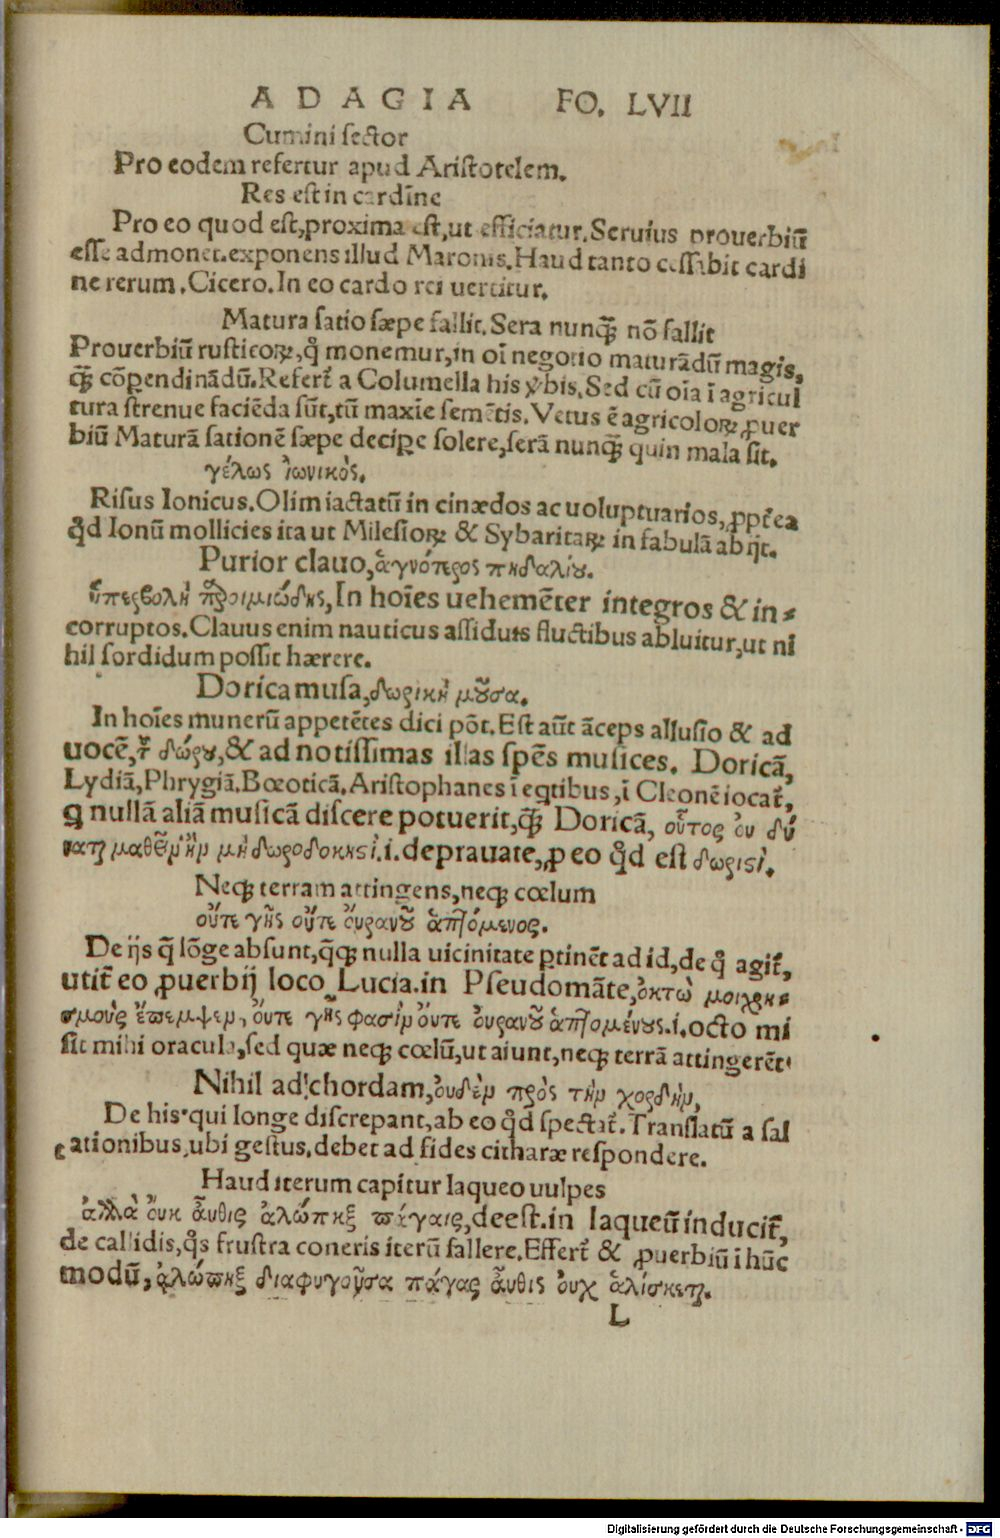 ADAGIA FO. LVII
Cumini sector
Pro eodem refertur apud Aristotelem.
Res est in cardine
Pro eo quod est, proxima est, ut efficiatur. Seruius prouerbiū
esse admonet. exponens illud Maronis. Haud tanto cessabit cardi
ne rerum. Cicero. In eo cardo rei uertitur.
Matura satio sæpe fallit. Sera nunqꝫ nō fallit
Prouerbiū rusticoꝝ, q̊ monemur, in oī negotio maturādū magis,
qꝫ cōpendinādū. Refert̃ a Columella his v̓bis. Sed cū oīa ī agricul
tura strenue faciēda sūt, tū maxīe semētis. Vetus ē agricoloꝝ ꝓuer
biū Maturā sationē sæpe deciꝑe solere, serā nunqꝫ quin mala sit.
γέλως ἰωνικὸς.
Risus Ionicus. Olim iactatū in cinædos ac uoluptuarios, ꝓpt̃ea
qd̓ Ionū mollicies ita ut Milesioꝝ & Sybaritaꝝ in fabulā abijt.
Purior clauo, ἁγνότερος πηδαλίου.
ὑπερβολὴ προιμιώδης, In hoīes uehemēter integros & in-
corruptos. Clauus enim nauticus assiduis fluctibus abluitur, ut ni
hil sordidum possit hærere.
Dorica musa, δωρικὴ μοῦσα.
In hoīes munerū appetētes dici pōt. Est aūt āceps allusio & ad
uocē, τ̃ δώρου, & ad notissimas illas spēs musices. Doricā,
Lydiā, Phrygiā. Bœoticā. Aristophanes ī eqtibus, ī Cleonē iocat̃,
ꝗ nullā aliā musicā discere potuerit, qꝫ Doricā, οὗτος οὐ δύ
ναται μαθεῖν ἢν μὴ δωροδοκηστὶ. i. deprauate, ꝓ eo qd̓ est δωριστὶ.
Neqꝫ terram attingens, neqꝫ cœlum
οὔτε γῆς οὔτε οὐρανοῦ ἁπτόμενος.
De ijs q̄ lōge absunt, q̄qꝫ nulla uicinitate ꝑtinēt ad id, de q̊ agit̃,
utit̃ eo ꝓuerbij loco Lucia. in Pseudomāte, ὀκτὼ μοι χρη-
σμοὺς ἔπεμψεν, οὔτε γῆς φασὶν οὔτε οὐρανοῦ ἁπτομένους. i. octo mi
sit mihi oracula, sed quæ neqꝫ cœlū, ut aiunt, neqꝫ terrā attingerēt
Nihil ad chordam, οὐδὲν πρὸς τὴν χορδὴν,
De his qui longe discrepant, ab eo qd̓ spectat̃. Translatū a sal
tationibus, ubi gestus. debet ad fides citharæ respondere.
Haud iterum capitur laqueo uulpes
ἀλλὰ οὐκ αὖθις ἀλώπηξ πάγαις, deest. in laqueū inducit̃,
de callidis, q̊s frustra coneris iterū fallere. Effert̃ & ꝓuerbiū ī hūc
modū, ἀλώπηξ διαφυγοῦσα πάγας αὖθις οὐχ ἁλίσκεται.
L
Digitalisierung gefördert durch die Deutsche Forschungsgemeinschaft - DFG